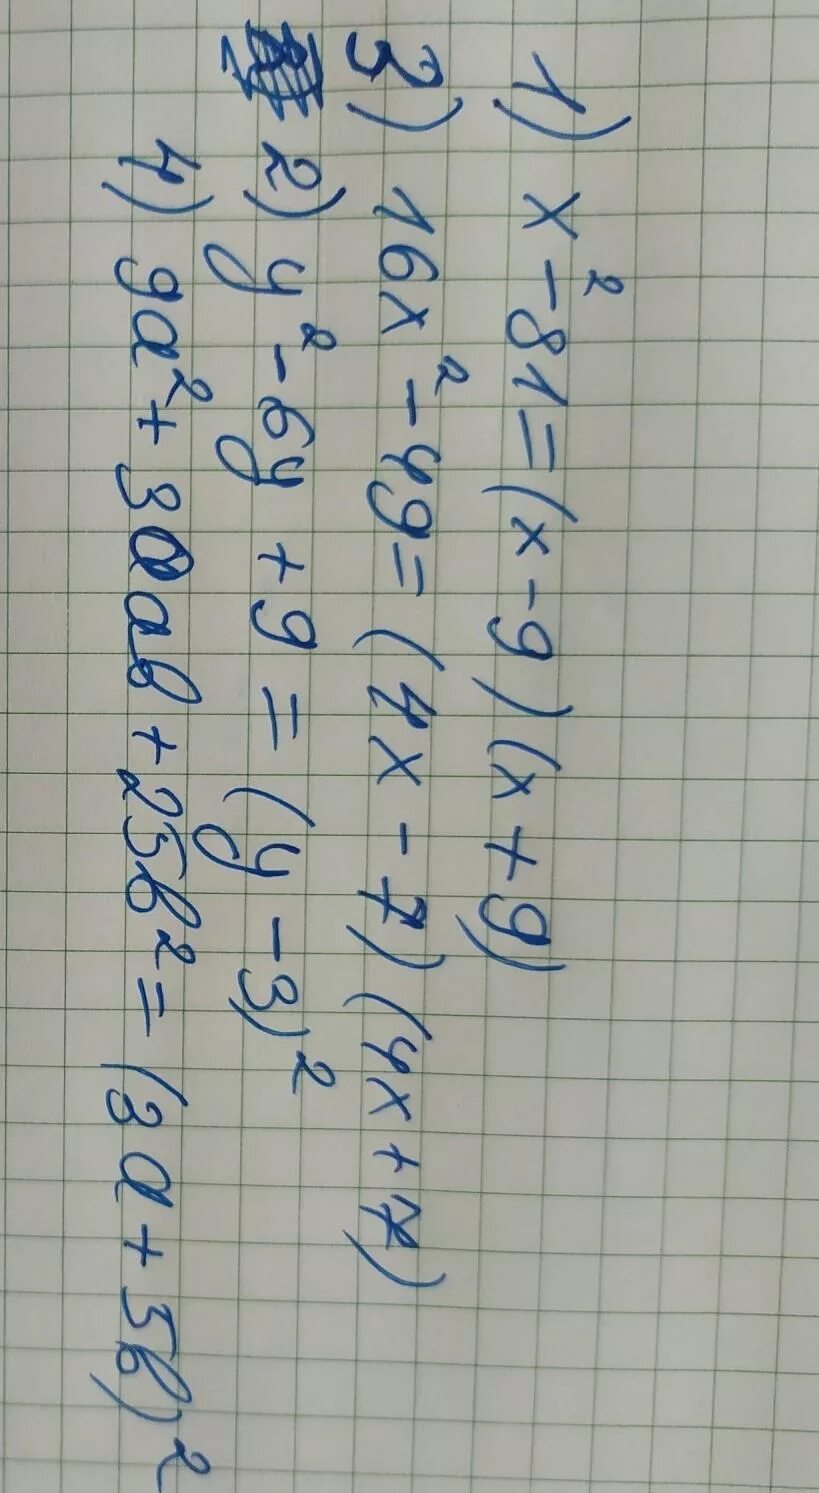 1) x² - 81 = (x - 9) (x + 9)
3) 16x² - 49 = (4x - 7) (4x + 7)
2) y² - 6y + 9 = (y - 3)²
4) 9a² + 30ab + 25b² = (3a + 5b)²